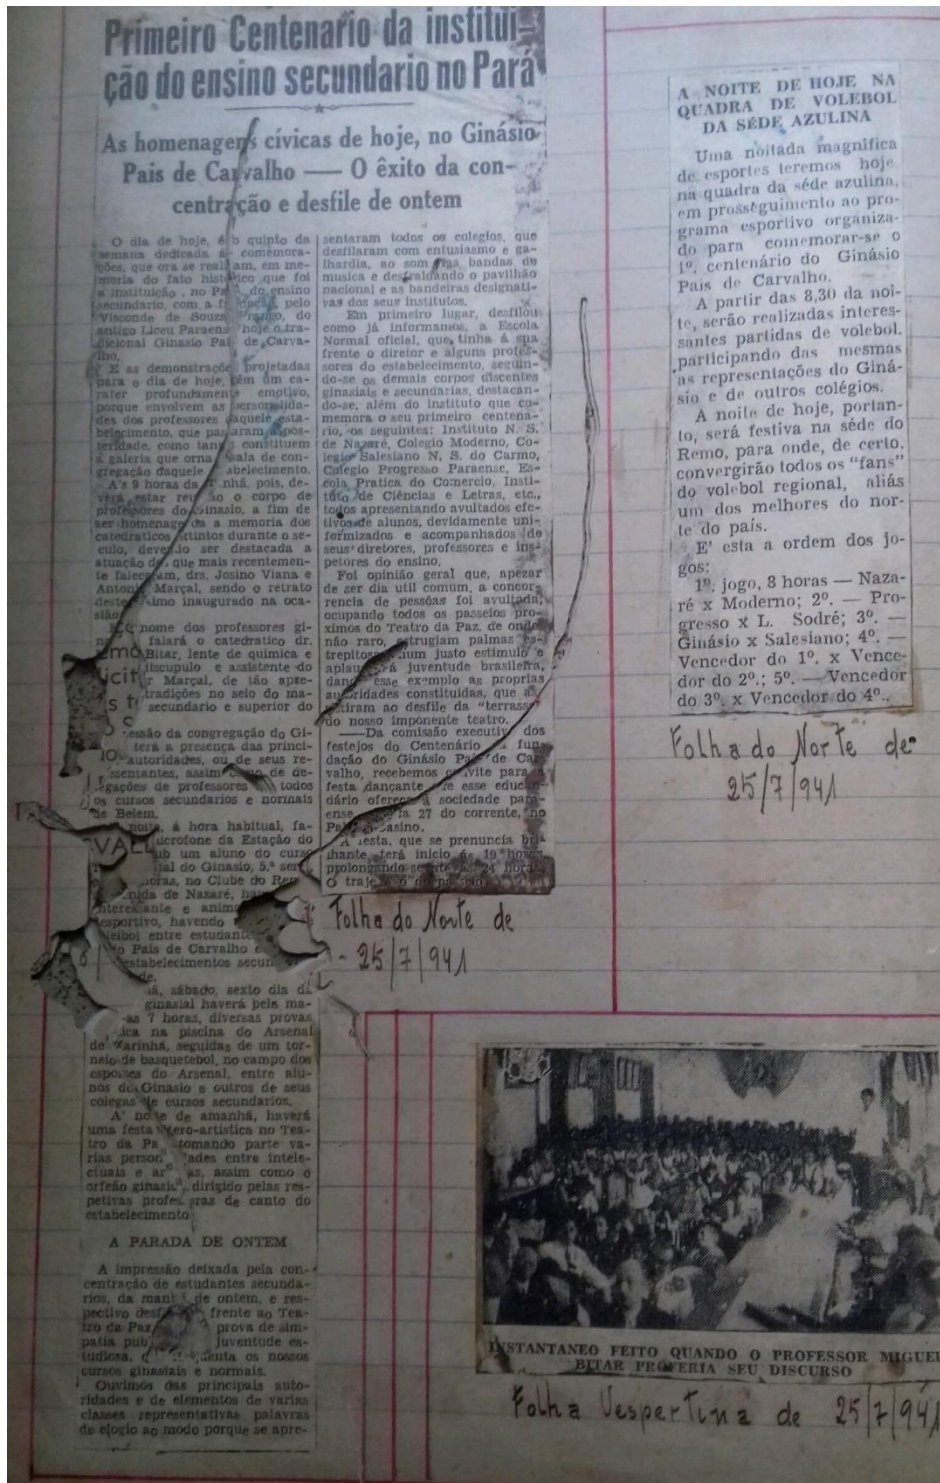 Primeiro Centenario da institui-
ção do ensino secundario no Pará
As homenagens cívicas de hoje, no Ginásio
Pais de Carvalho — O êxito da con-
centração e desfile de ontem
O dia de hoje, é o quinto da
semana dedicada á comemora-
ções, que ora se realizam, em me-
moria do fato historico que foi
a instituição, no Pa do ensino
secundario, com a f dação pelo
Visconde de Souza Franco, do
antigo Liceu Paraens hoje o tra-
dicional Ginasio Pais de Carva-
lho.
E as demonstraçõe projetadas
para o dia de hoje, têm um ca-
rater profundamente emotivo,
porque envolvem as personalida-
des dos professores daquele esta-
belecimento, que passaram á pos-
teridade, como tan constituem
a galeria que orna sala de con-
gregação daquele abelecimento.
A's 9 horas da nhã, pois, de-
verá estar reu o corpo de
professores do Ginasio, a fim de
ser homenage da a memoria dos
catedraticos xtintos durante o se-
culo, deve o ser destacada a
atuação de que mais recentemen-
te falece am, drs. Josino Viana e
Anton Marçal, sendo o retrato
deste imo inaugurado na oca-
sião
nome dos professores gi-
falará o catedratico dr.
Bitar, lente de quimica e
iscupulo e assistente do
r Marçal, de tão apre-
tradições no seio do ma-
secundario e superior do
essão da congregação do Gi-
terá a presença das princi-
autoridades, ou de seus re-
sentantes, assim como de de-
legações de professores todos
os cursos secundarios e normais
de Belem.
noite, á hora habitual, fa-
icrofone da Estação do
ub um aluno do curso
al do Ginasio, 5.ª ser
oras, no Clube do Re
nida de Nazaré, ha
interessante e anima
esportivo, havendo
leibol entre estudant
o Pais de Carvalho e
estabelecimentos secun
de.
hã, sábado, sexto dia d
ginasial haverá pela ma-
as 7 horas, diversas provas
ica na piscina do Arsenal
de Marinha, seguidas de um tor-
neio de basquetebol, no campo dos
esportes do Arsenal, entre alu-
nos do Ginasio e outros de seus
colegas de cursos secundarios.
A' noite de amanhã, haverá
uma festa litero-artistica no Tea-
tro da Pa tomando parte va-
rias person dades entre intele-
ctuais e ar as, assim como o
orfeão ginasia dirigido pelas res-
petivas profes oras de canto do
estabelecimento
A PARADA DE ONTEM
A impressão deixada pela con-
centração de estudantes secunda-
rios, da manhã de ontem, e res-
pectivo desf frente ao Tea-
tro da Paz prova de sim-
patia pub juventude es-
tudiosa, q enta os nossos
cursos ginasiais e normais.
Ouvimos das principais auto-
ridades e de elementos de varias
classes representativas palavras
de elogio ao modo porque se apre-
sentaram todos os colegios, que
desfilaram com entusiasmo e ga-
lhardia, ao som das bandas de
musica e desfraldando o pavilhão
nacional e as bandeiras designati-
vas dos seus institutos.
Em primeiro lugar, desfilou
como já informamos, a Escola
Normal oficial, que tinha á sua
frente o diretor e alguns profes-
sores do estabelecimento, seguin-
do-se os demais corpos discentes
ginasiais e secundarias, destacan-
do-se, além do instituto que co-
memora o seu primeiro centena-
rio, os seguintes: Instituto N. S.
de Nazaré, Colegio Moderno, Co-
legio Salesiano N. S. do Carmo,
Colegio Progresso Paraense, Es-
cola Pratica do Comercio, Insti-
tuto de Ciências e Letras, etc.,
todos apresentando avultados efe-
tivos de alunos, devidamente uni-
formizados e acompanhados de
seus diretores, professores e ins-
petores do ensino.
Foi opinião geral que, apezar
de ser dia util comum, a concor-
rencia de pessôas foi avultada,
ocupando todos os passeios pro-
ximos do Teatro da Paz, de onde
não raro, estrugiam palmas es-
trepitosa num justo estimulo e
aplau á juventude brasileira,
dand esse exemplo as proprias
autoridades constituidas, que as-
sistiram ao desfile da "terrasse"
do nosso imponente teatro.
—Da comissão executiv dos
festejos do Centenário fun-
dação do Ginásio Pais de Car-
valho, recebemos convite para a
festa dançante e esse educan-
dário oferec á sociedade para-
ense ia 27 do corrente, no
Pal Casino.
A festa, que se prenuncia bri-
lhante, terá inicio ás 19 horas
prolongando-se até ás 24 horas.
O traje é o de passeio.
Folha do Norte de
- 25/7/941
A NOITE DE HOJE NA
QUADRA DE VOLEBOL
DA SÉDE AZULINA
Uma noitada magnifica
de esportes teremos hoje
na quadra da séde azulina,
em prosseguimento ao pro-
grama esportivo organiza-
do para comemorar-se o
1º. centenário do Ginásio
Pais de Carvalho.
A partir das 8,30 da noi-
te, serão realizadas interes-
santes partidas de volebol,
participando das mesmas
as representações do Giná-
sio e de outros colégios.
A noite de hoje, portan-
to, será festiva na séde do
Remo, para onde, de certo,
convergirão todos os "fans"
do volebol regional, aliás
um dos melhores do nor-
te do país.
E' esta a ordem dos jo-
gos:
1º. jogo, 8 horas — Naza-
ré x Moderno; 2º. — Pro-
gresso x L. Sodré; 3º. —
Ginásio x Salesiano; 4º. —
Vencedor do 1º. x Vence-
dor do 2º.; 5º. — Vencedor
do 3º. x Vencedor do 4º..
Folha do Norte de
25/7/941
INSTANTANEO FEITO QUANDO O PROFESSOR MIGUEL
BITAR PROFERIA SEU DISCURSO
Folha Vespertina de 25/7/941